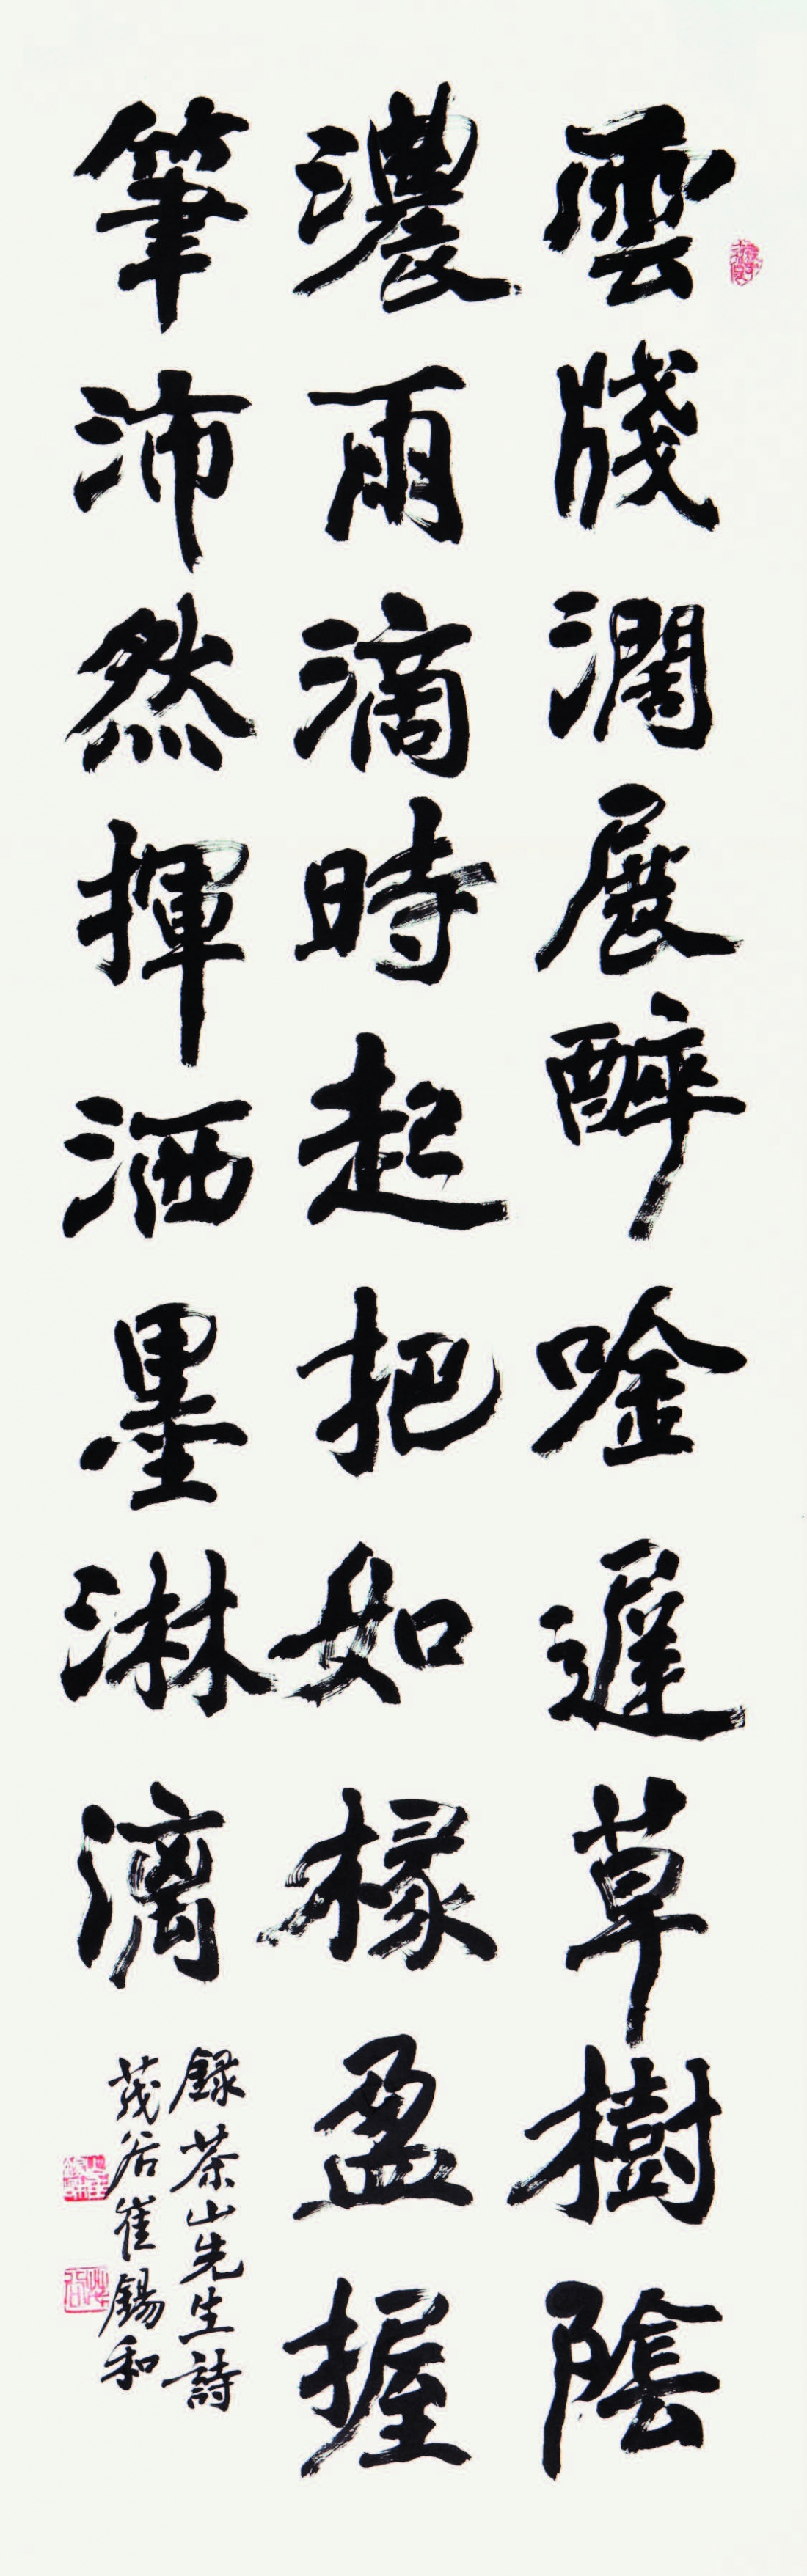 雲牋濶展醉唫遲草樹陰
濃雨滴時起把如椽盈握
筆沛然揮洒墨淋漓
錄茶山先生詩
茂谷崔錫和